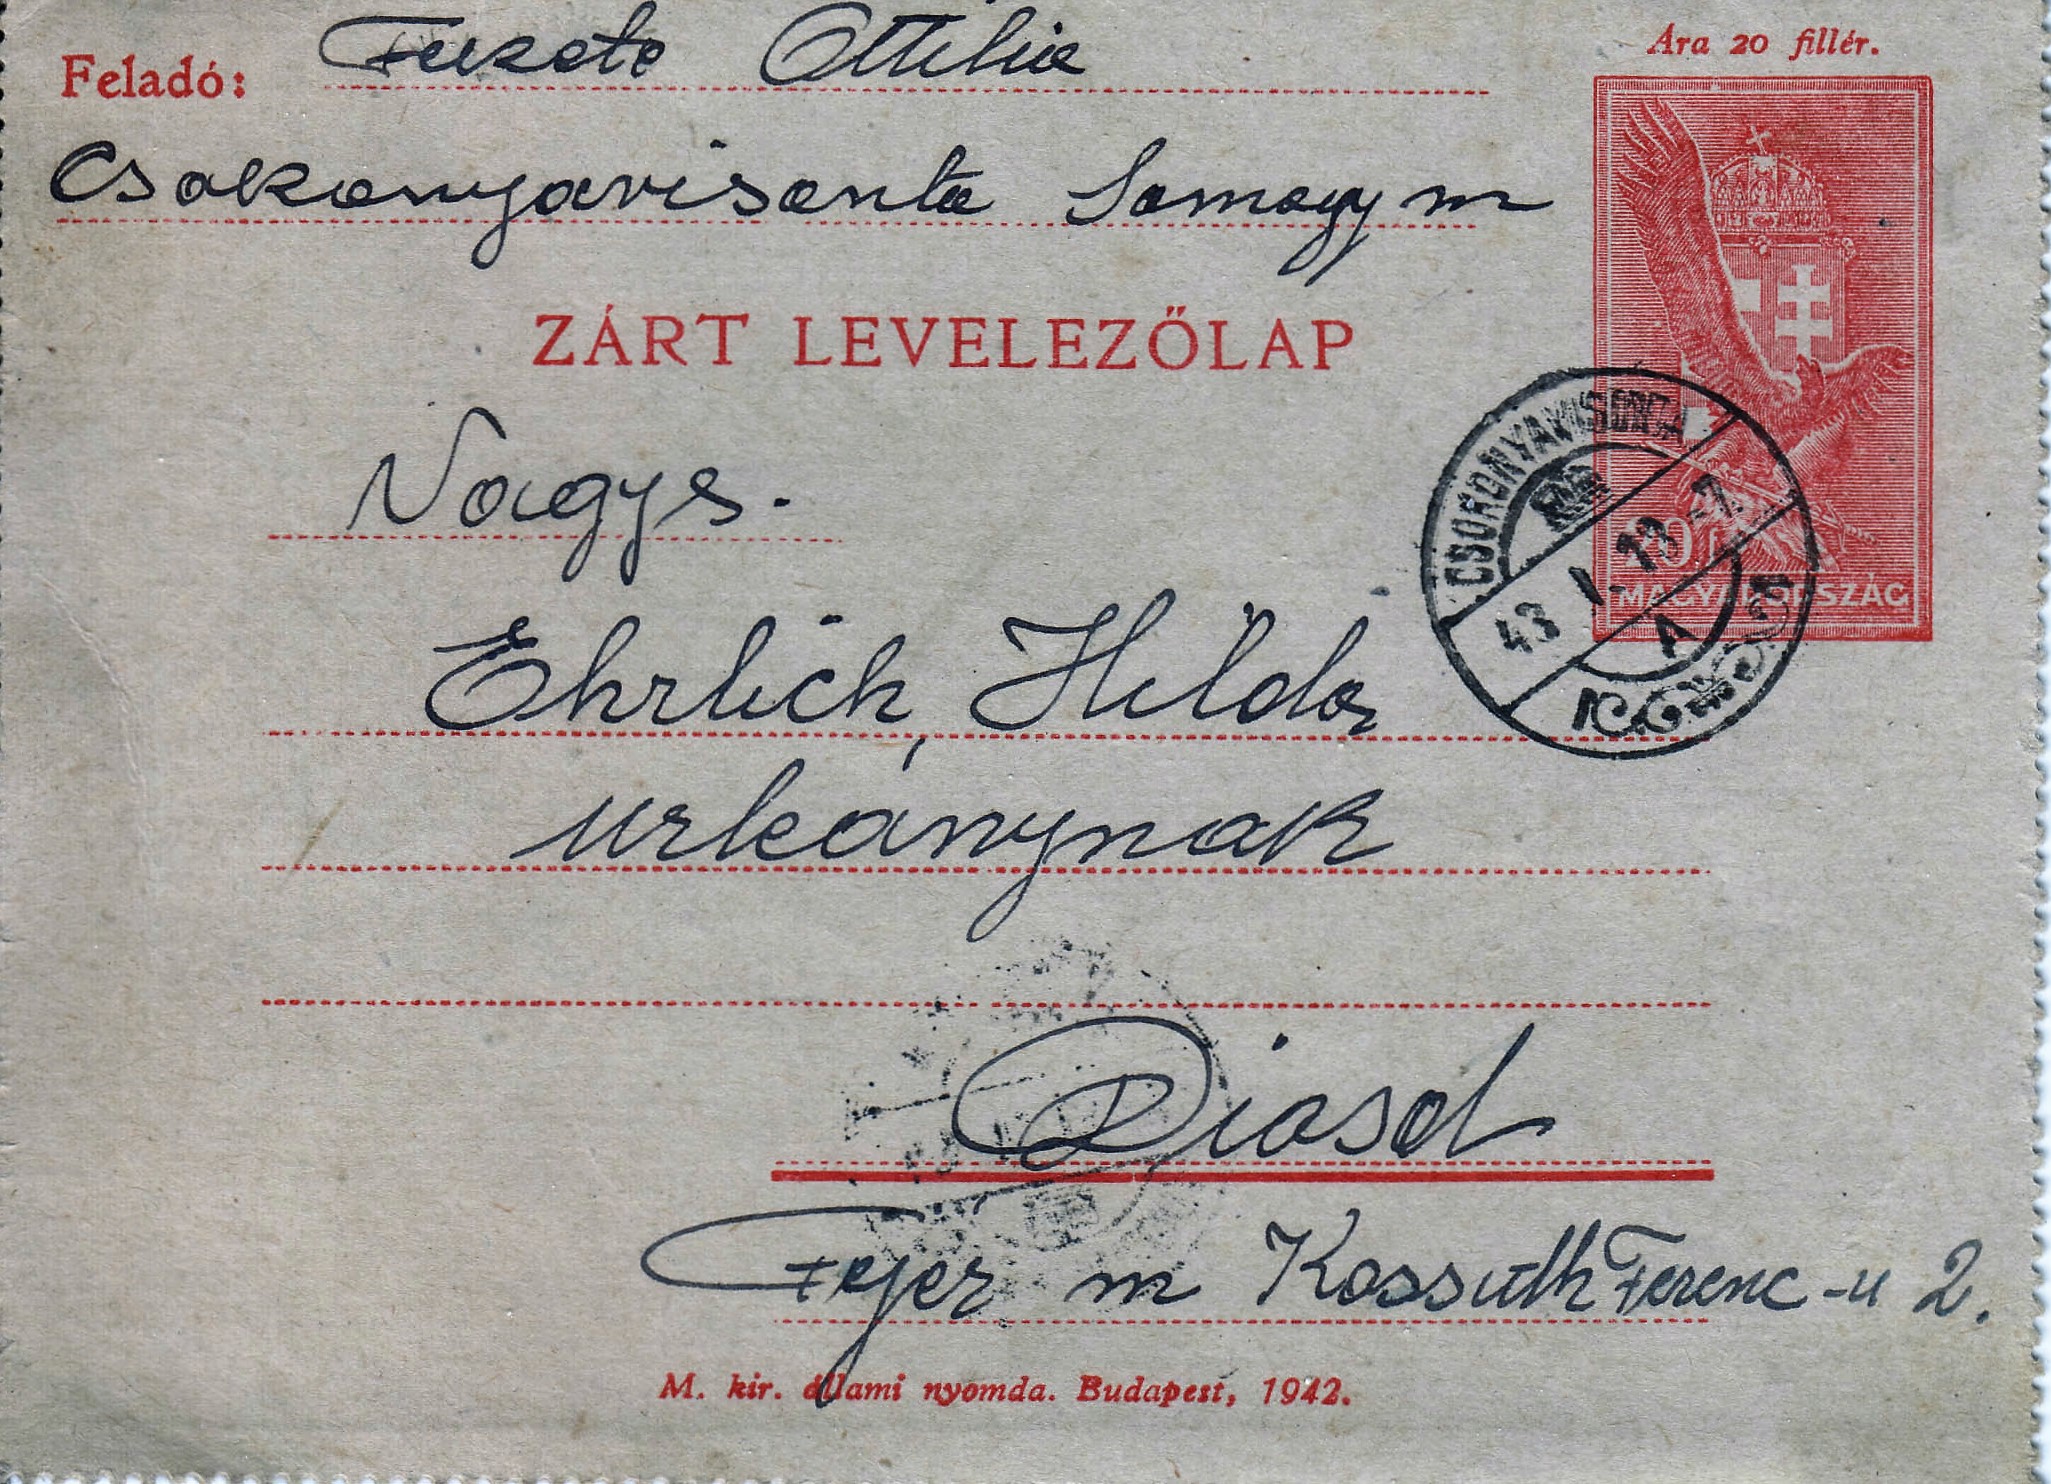 Ára 20 fillér.
Feladó: Fekete Ottilia
Csokonyavisonta Somogy m
ZÁRT LEVELEZŐLAP
CSOKONYAVISONTA
43 I. 13 -7
A
20 f
MAGYARORSZÁG
Nagys.
Ehrlich Hilda
urleánynak
Diosd
Fejér m Kossuth Ferenc-u 2.
M. kir. állami nyomda. Budapest, 1942.